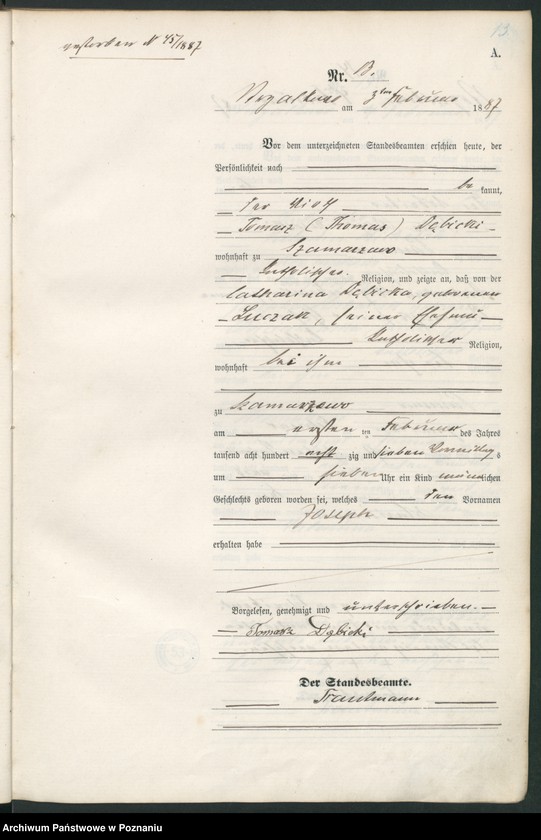 13.
gestorben N 45/1887
A.
Nr. 13.
am 3ten Februar 1887
Vor dem unterzeichneten Standesbeamten erschien heute, der
Persönlichkeit nach
bekannt,
der Wirth
Tomasz (Thomas) Dębicki
wohnhaft zu Szamarzewo
katholischer Religion, und zeigte an, daß von der
Catharina Dębicka, geborenen
Luczak, seiner Ehefrau
katholischer Religion,
wohnhaft bei ihm
zu Szamarzewo
am ersten ten Februar des Jahres
tausend acht hundert acht zig und sieben Vormittags
um sieben Uhr ein Kind männlichen
Geschlechts geboren worden sei, welches den Vornamen
Joseph
erhalten habe
Vorgelesen, genehmigt und unterschrieben.
Tomasz Dębicki
Der Standesbeamte.
Trautmann
Archiwum Państwowe w Poznaniu